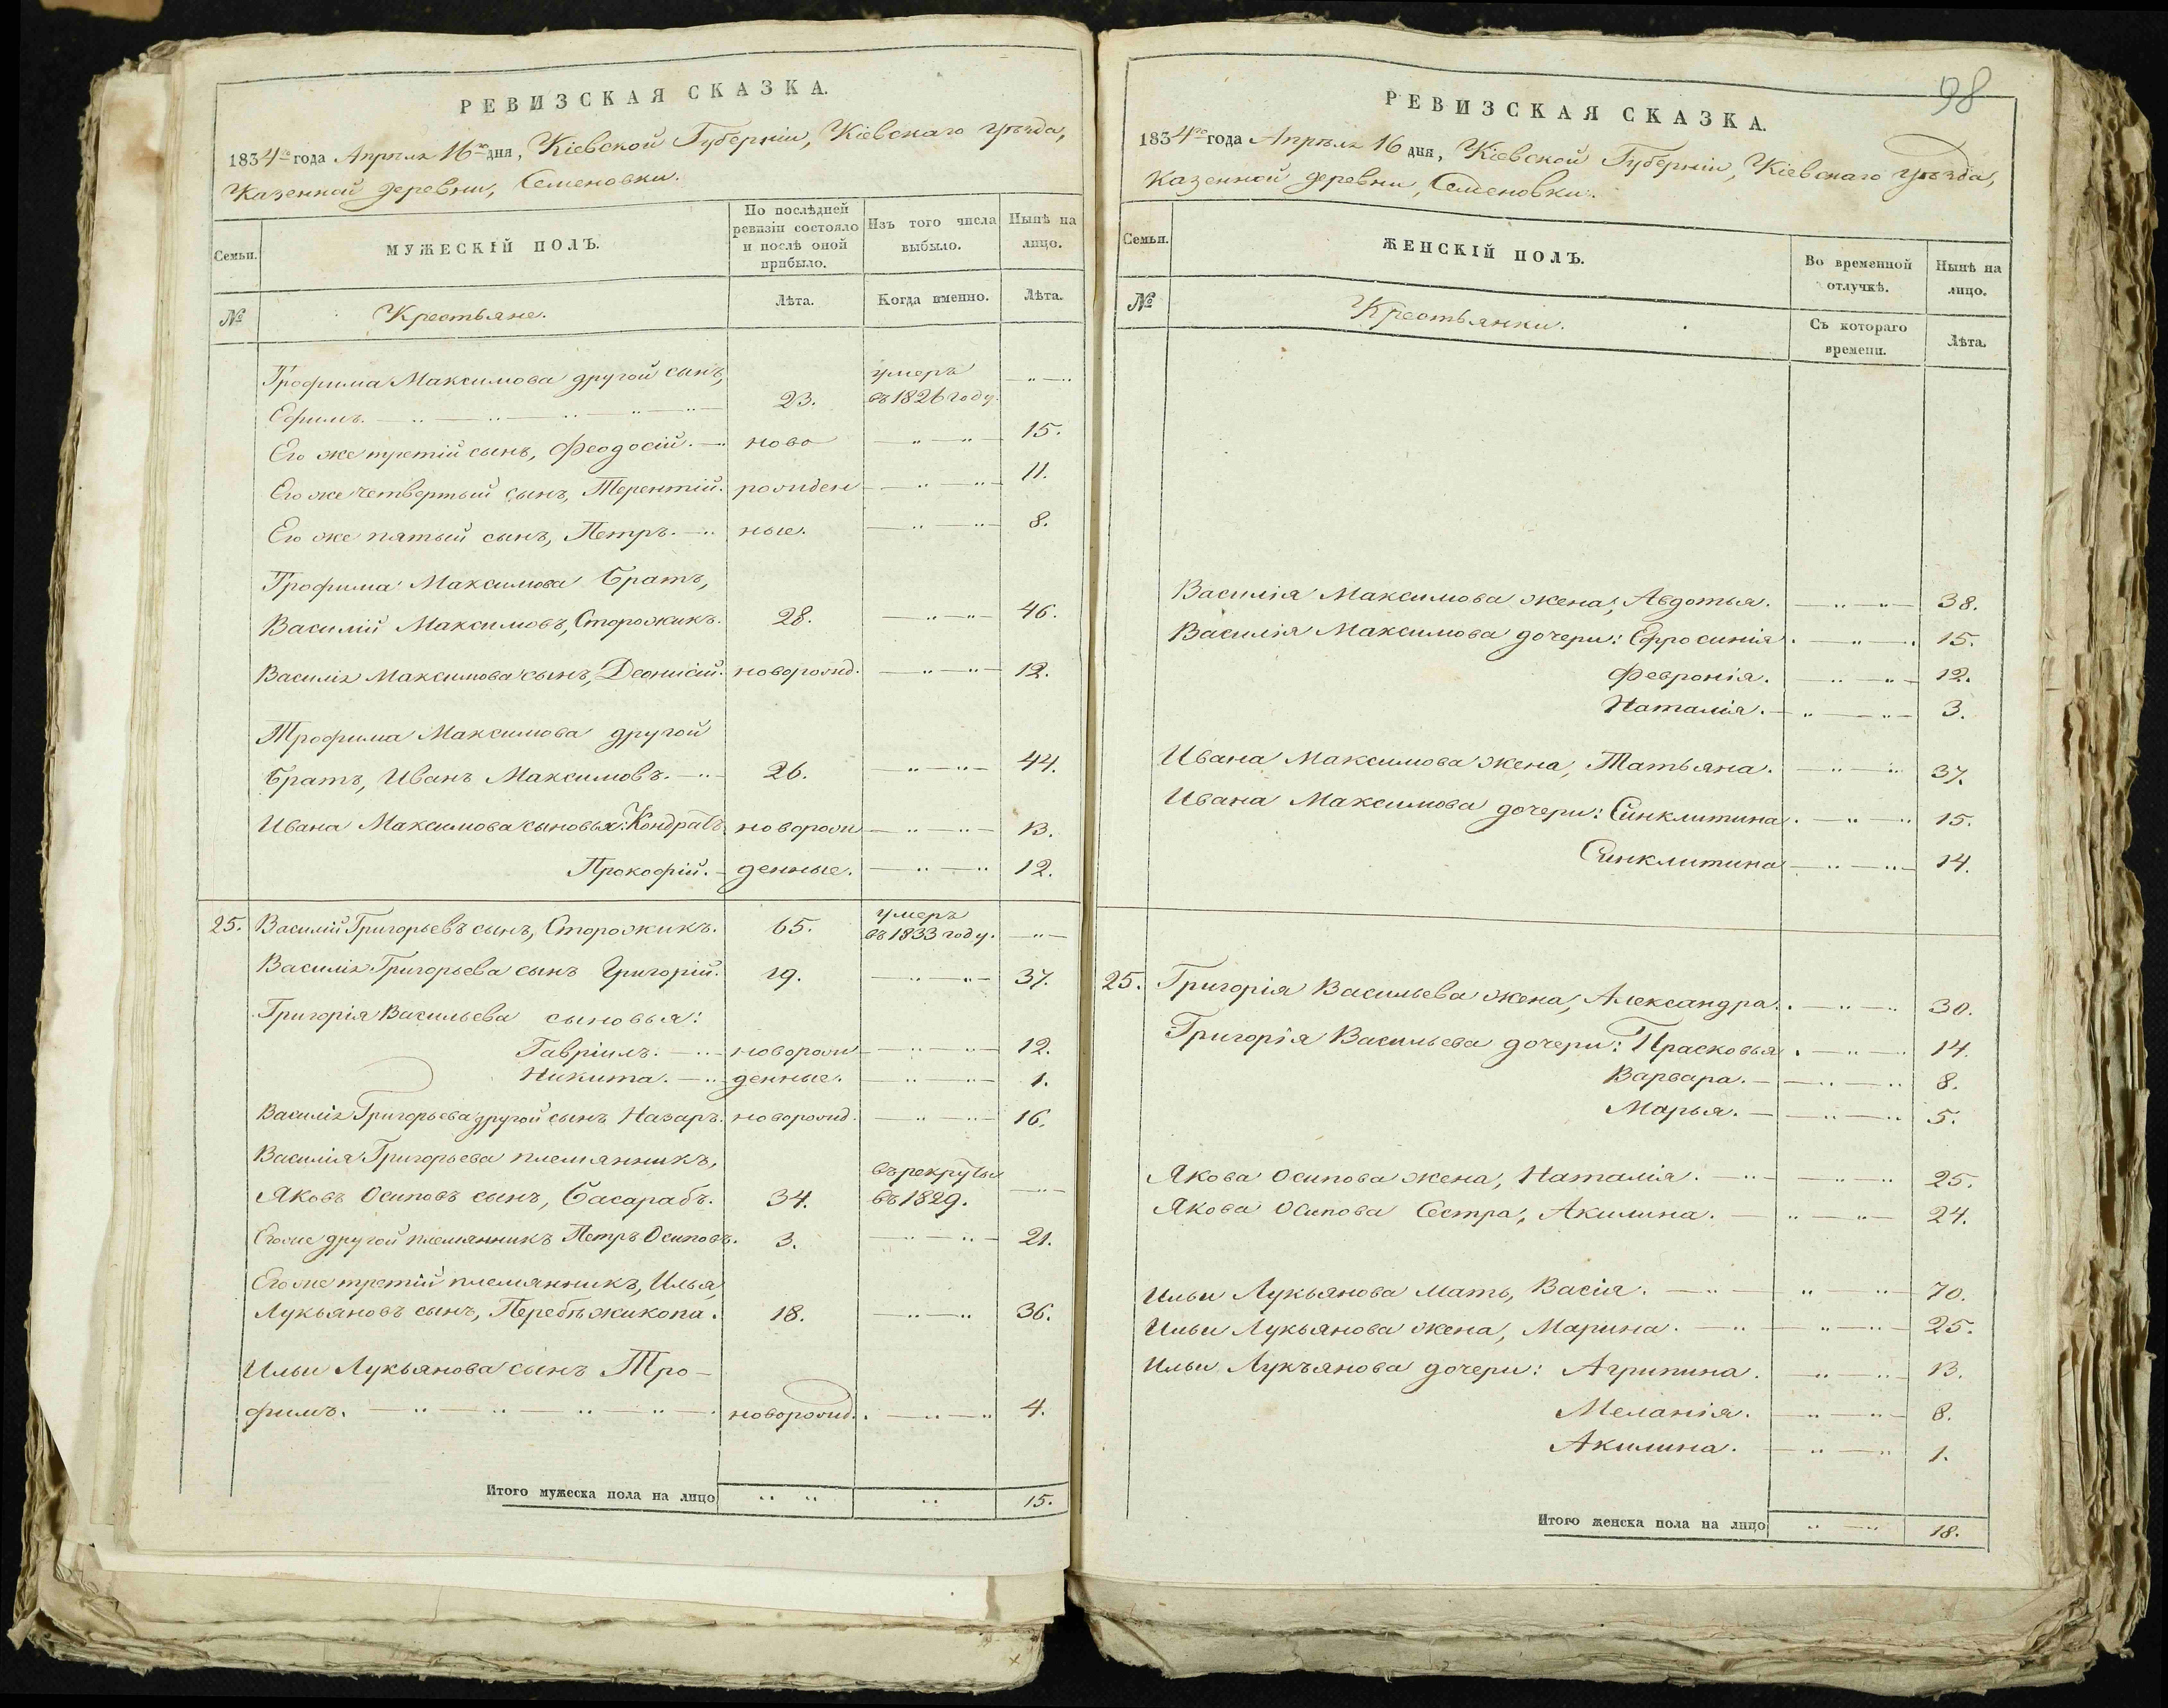 РЕВИЗСКАЯ СКАЗКА.
1834го года Апрѣля 16го дня, Кіевской Губерніи, Кіевскаго уѣзда,
Казенной деревни, Семеновки.
Семьи.
МУЖЕСКІЙ ПОЛЪ.
По послѣдней ревизіи состояло и послѣ оной прибыло.
Изъ того числа выбыло.
Нынѣ на лицо.
№
Крестьяне.
Лѣта.
Когда именно.
Лѣта.
Трофима Максимова другой сынъ, умеръ
Ефимъ. 23. въ 1826 году.
Его же третій сынъ, Феодосій. ново 15.
Его же четвертый сынъ, Терентій. рожден 11.
Его же пятый сынъ, Петръ. ные. 8.
Трофима Максимова братъ,
Василій Максимовъ, Сторожикъ. 28. 46.
Василія Максимова сынъ, Деонисій. новорожд. 12.
Трофима Максимова другой
братъ, Иванъ Максимовъ. 26. 44.
Ивана Максимова сыновья: Кондратъ новорож 13.
Прокофій. денные. 12.
25. Василій Григорьевъ сынъ, Сторожикъ. 65. умеръ въ 1833 году.
Василія Григорьева сынъ Григорій. 19. 37.
Григорія Васильева сыновья:
Гавріилъ. новорож 12.
Никита. денные. 1.
Василія Григорьева другой сынъ Назаръ. новорожд. 16.
Василія Григорьева племянникъ, въ рекруты
Яковъ Осиповъ сынъ, Басарабъ. 34. въ 1829.
Его же другой племянникъ Петръ Осиповъ. 3. 21.
Его же третій племянникъ, Илья
Лукьяновъ сынъ, Перебѣжикопа. 18. 36.
Ильи Лукьянова сынъ Тро-
фимъ. новорожд. 4.
Итого мужеска пола на лицо 15.
98
РЕВИЗСКАЯ СКАЗКА.
1834го года Апрѣля 16 дня, Кіевской Губерніи, Кіевскаго уѣзда,
Казенной деревни, Семеновки.
Семьи.
ЖЕНСКІЙ ПОЛЪ.
Во временной отлучкѣ.
Нынѣ на лицо.
№
Крестьянки.
Съ котораго времени.
Лѣта.
Василія Максимова жена, Авдотья. 38.
Василія Максимова дочери: Ефросинія. 15.
Февронія. 12.
Наталія. 3.
Ивана Максимова жена, Татьяна. 37.
Ивана Максимова дочери: Синклитина. 15.
Синклитина 14.
25. Григорія Васильева жена, Александра. 30.
Григорія Васильева дочери: Прасковья. 14.
Варвара. 8.
Марья. 5.
Якова Осипова жена, Наталія. 25.
Якова Осипова Сестра, Акилина. 24.
Ильи Лукьянова мать, Васія. 70.
Ильи Лукьянова жена, Марина. 25.
Ильи Лукъянова дочери: Агрипина. 13.
Меланія. 8.
Акилина. 1.
Итого женска пола на лицо 18.